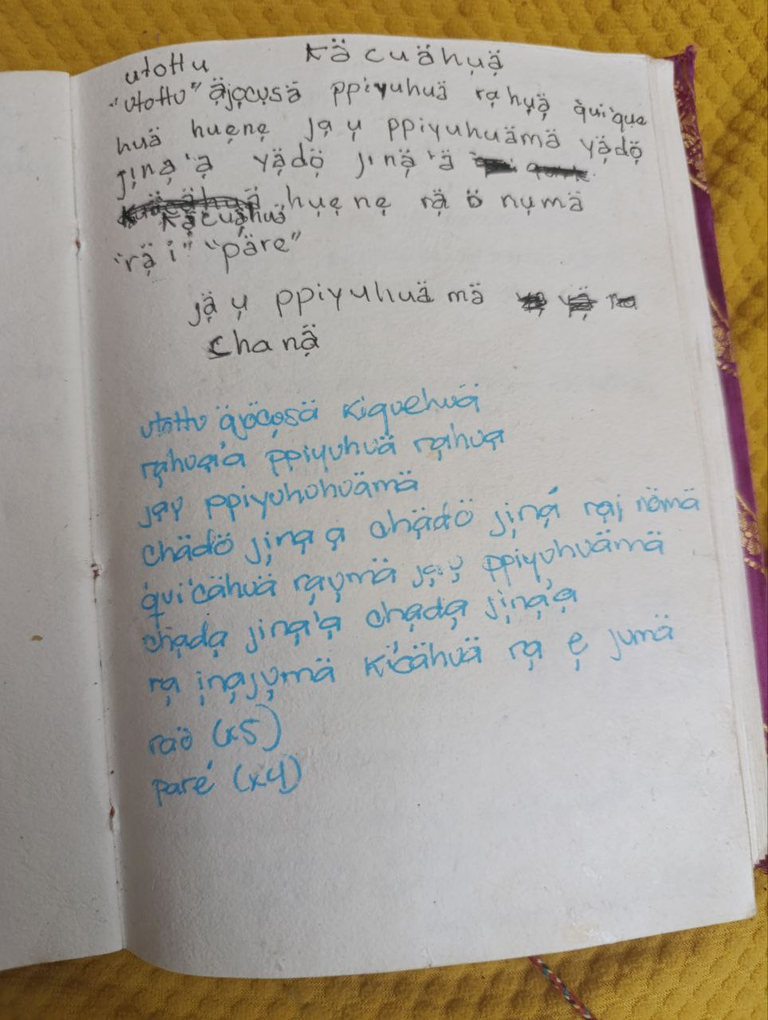 utottu kä cuähuä̱
"utottu" ä̱jo̱cu̱sä ppiyuhuä ra̱huä̱ qui'que
huä hue̱ne̱ ja̱ u̱ ppiyuhuämä yä̱dö̱
ji̱na̱'a̱ yä̱dö̱ ji̱nä̱'ä
kä̱cuä̱huä hue̱ ne̱ rä̱ ö nu̱mä
"rä̱ i" "päre"
jä̱ u̱ ppiyuhuä mä
cha nä̱
utottu äjöcö̱sä kiquehuä
ra̱hua̱'a ppiyuhuä ra̱hua̱
ja̱u̱ ppiyuhuhuämä
chädö ji̱na̱ a̱ chä̱dö ji̱ná̱ ra̱i̱ nömä
qui'cähuä ra̱u̱mä ja̱ u̱ ppiyu̱huämä
cha̱da̱ ji̱na̱'a̱ cha̱da̱ ji̱na̱'a̱
ra̱ i̱na̱ju̱mä ki'cähuä ra̱ e̱ jumä
raö (x5)
paré (x4)